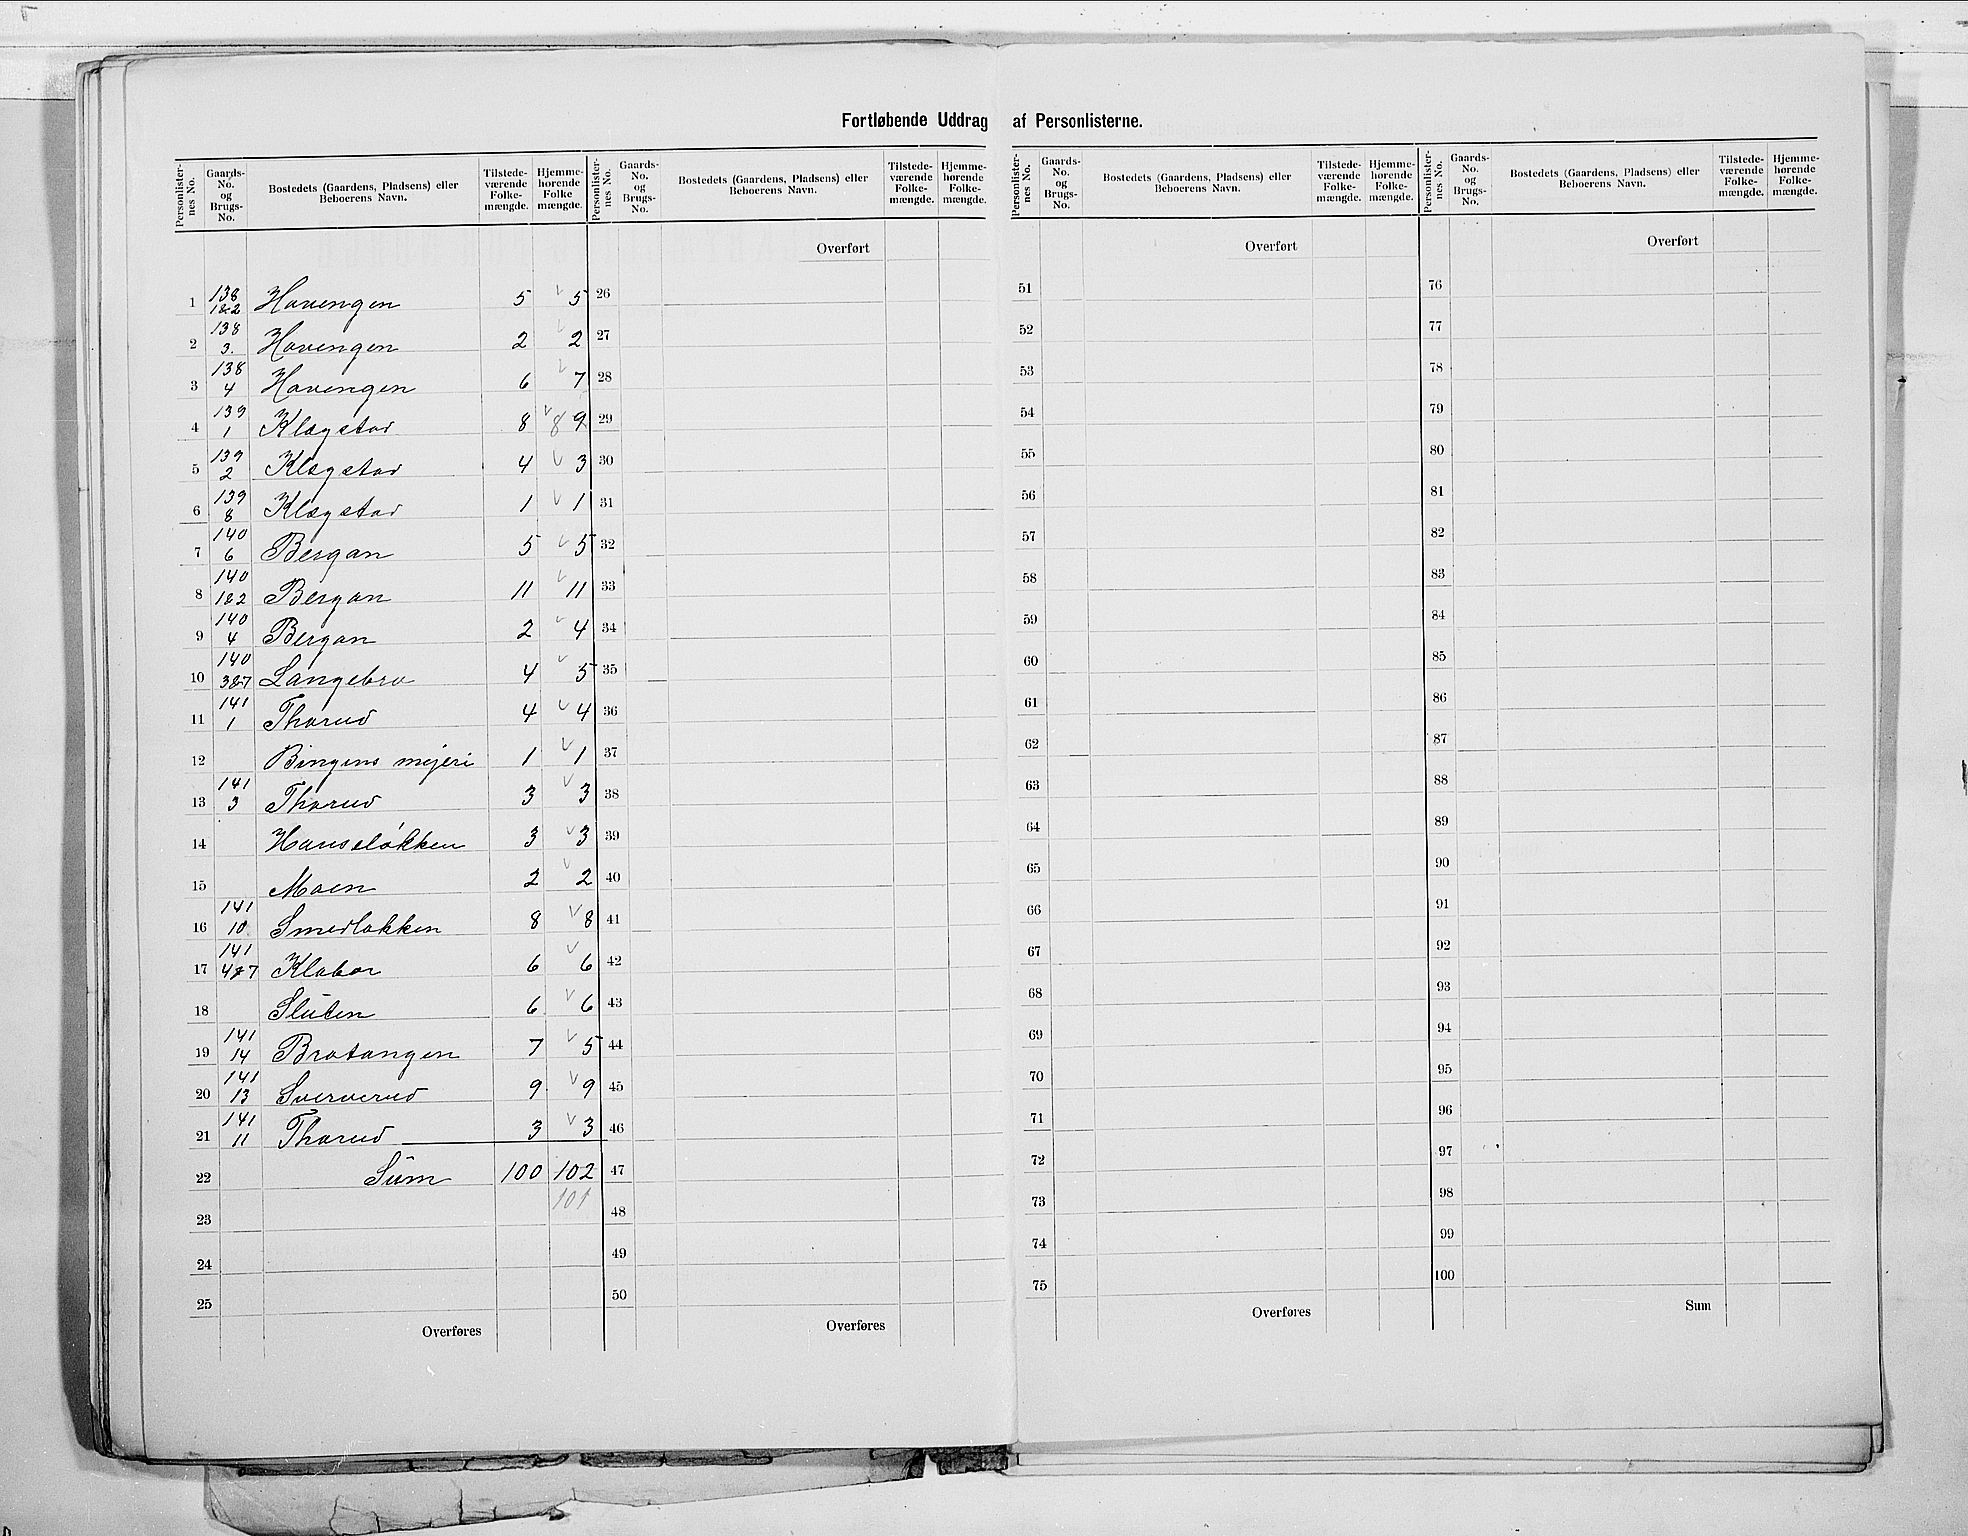 Fortløbende Uddrag af Personlisterne.
Personlister-nes No. Gaards-No. og Brugs-No. Bostedets (Gaardens, Pladsens) eller Beboerens Navn. Tilstede-værende Folke-mængde. Hjemme-hørende Folke mængde.
1 138 1&2 Havengen 5 5
2 138 3. Havengen 2 2
3 138 4 Havengen 6 7
4 139 1 Klægstad 8 8 9
5 139 2 Klægstad 4 3
6 139 8 Klægstad 1 1
7 140 6 Bergan 5 5
8 140 1&2 Bergan 11 11
9 140 4 Bergan 2 4
10 140 3&7 Langebro 4 5
11 141 1 Thorud 4 4
12 Bingens mejeri 1 1
13 141 3 Thorud 3 3
14 Hanseløkken 3 3
15 Moen 2 2
16 141 10 Smedløkken 8 8
17 141 4&7 Klobor 6 6
18 Sluten 6 6
19 141 14 Brotangen 7 5
20 141 13 Sververud 9 9
21 141 11 Thorud 3 3
22 Sum 100 102
101
23
24
25
Overføres
Personlister-nes No. Gaards-No. og Brugs-No. Bostedets (Gaardens, Pladsens) eller Beboerens Navn. Tilstede-værende Folke-mængde. Hjemme-hørende Folke-mængde.
Overført
26
27
28
29
30
31
32
33
34
35
36
37
38
39
40
41
42
43
44
45
46
47
48
49
50
Overføres
Personlister-nes No. Gaards-No. og Brugs-No. Bostedets (Gaardens, Pladsens) eller Beboerens Navn. Tilstede-værende Folke-mængde. Hjemme-hørende Folke-mængde.
Overført
51
52
53
54
55
56
57
58
59
60
61
62
63
64
65
66
67
68
69
70
71
72
73
74
75
Overføres
Personlister-nes No. Gaards-No. og Brugs-No. Bostedets (Gaardens, Pladsens) eller Beboerens Navn. Tilstede-værende Folke-mængde. Hjemme-hørende Folke-mængde.
Overført
76
77
78
79
80
81
82
83
84
85
86
87
88
89
90
91
92
93
94
95
96
97
98
99
100
Sum